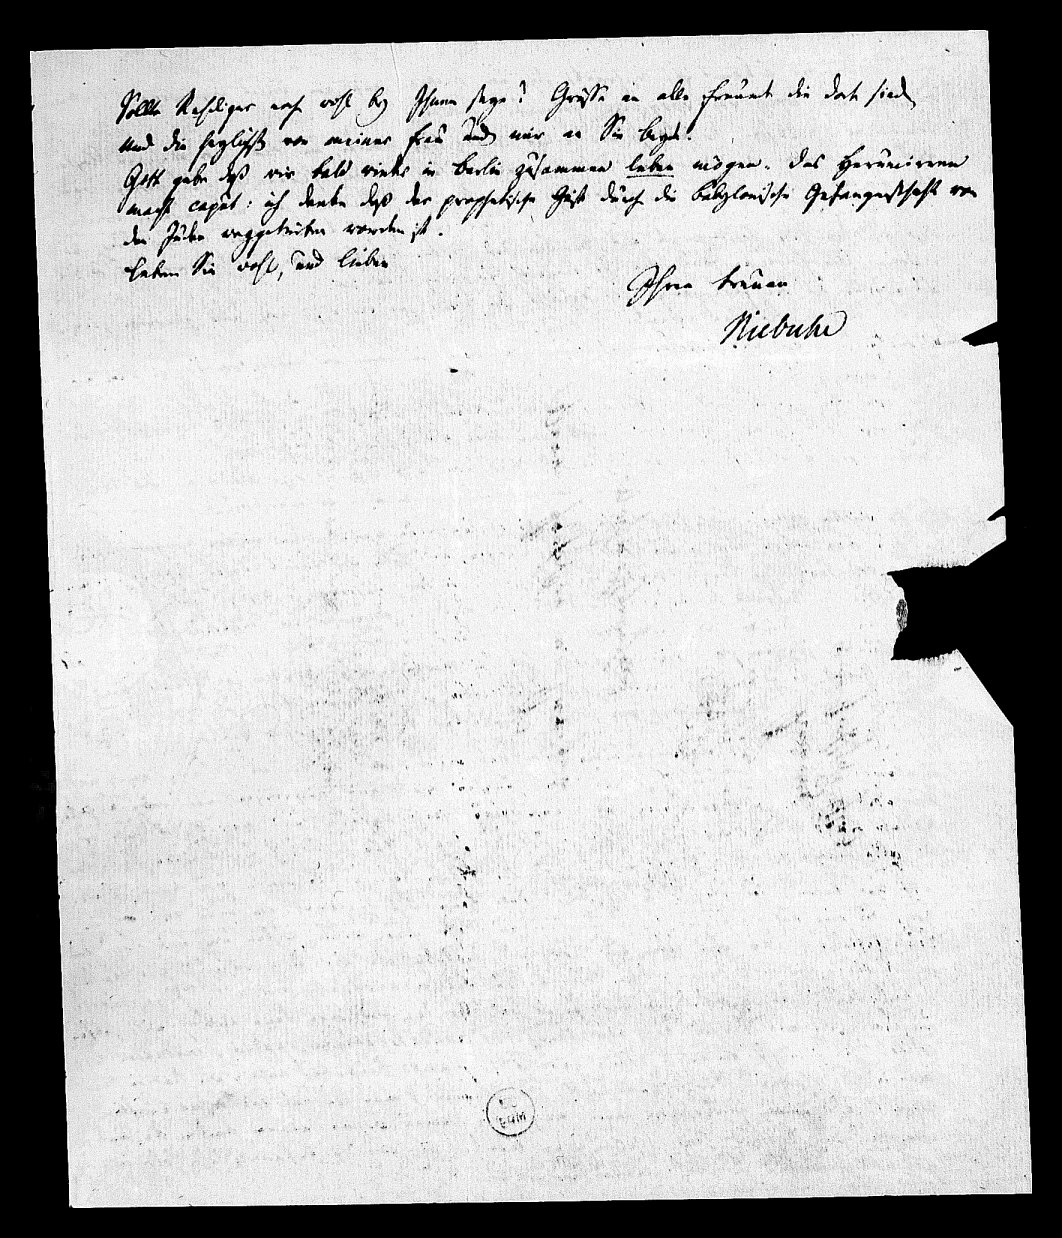 Sollte Rehdiger noch wohl bey Ihnen seyn? Grüsse an alle Freunde die dort sind,
und die herzlichsten von meiner Frau und mir an Sie beyde.
Gott gebe daß wir bald wieder in Berlin zusammen leben mögen. Das Herumirren
macht caput: ich denke daß der prophetische Geist durch die babylonische Gefangenschaft von
den Juden weggetrieben worden ist.
Leben Sie wohl, und lieben
Ihren treuen
Niebuhr